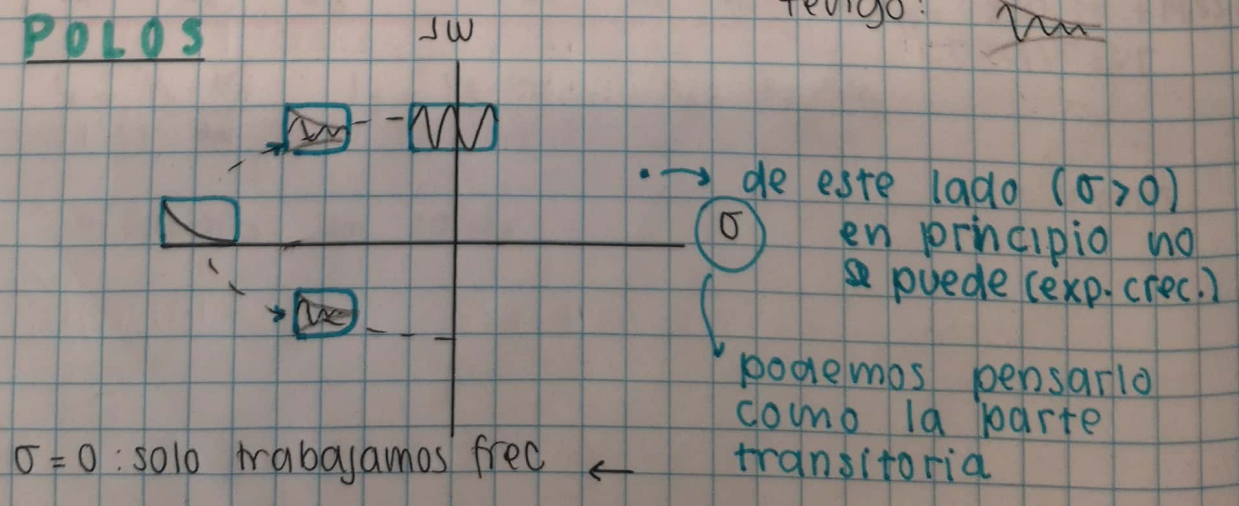 tengo:
POLOS
JW
de este lado (σ>0)
σ
en principio no
se puede (exp. crec.)
podemos pensarlo
como la parte
transitoria
σ = 0 : solo trabajamos frec ←